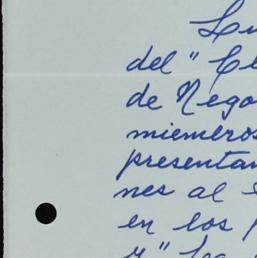 Lu
del "Ce
de Nego
miemeros
presentan
nes al
en los
y "La